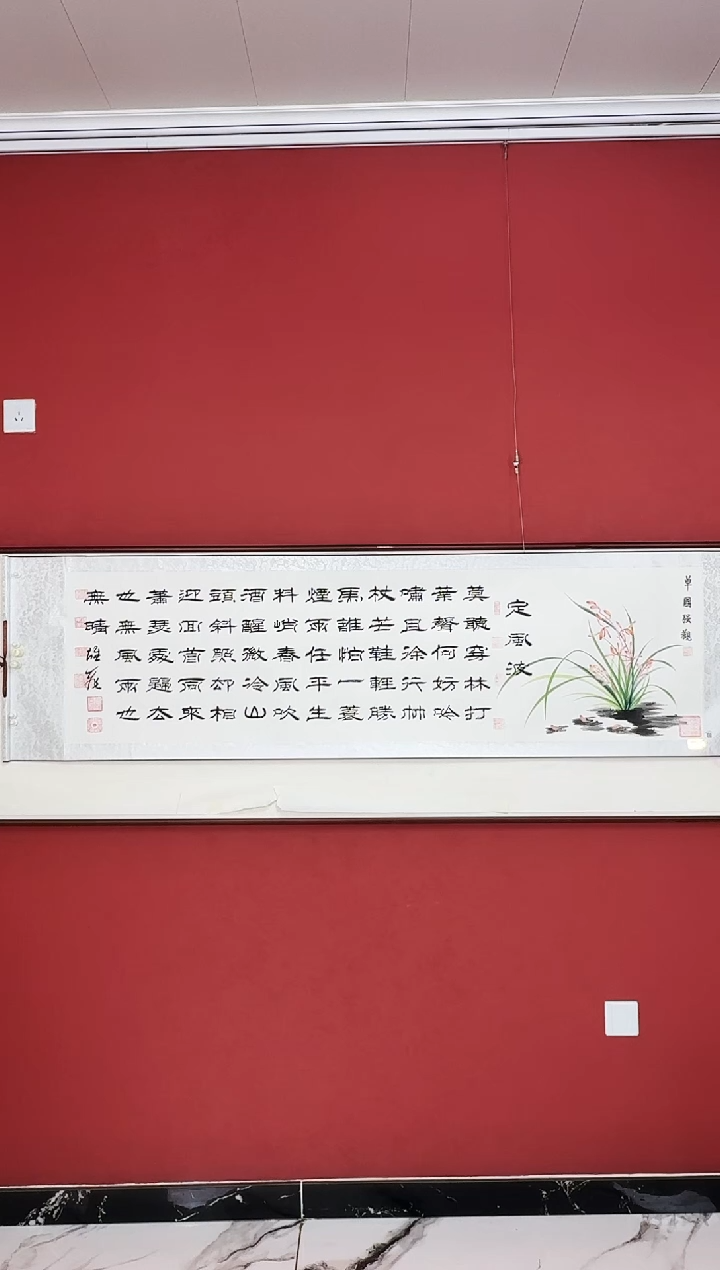 定風波
莫聽穿林打
葉聲何妨吟
嘯且徐行竹
杖芒鞋輕勝
馬誰怕一蓑
煙雨任平生
料峭春風吹
酒醒微冷山
頭斜照却相
迎回首向來
蕭瑟處歸去
也無風雨也
無晴